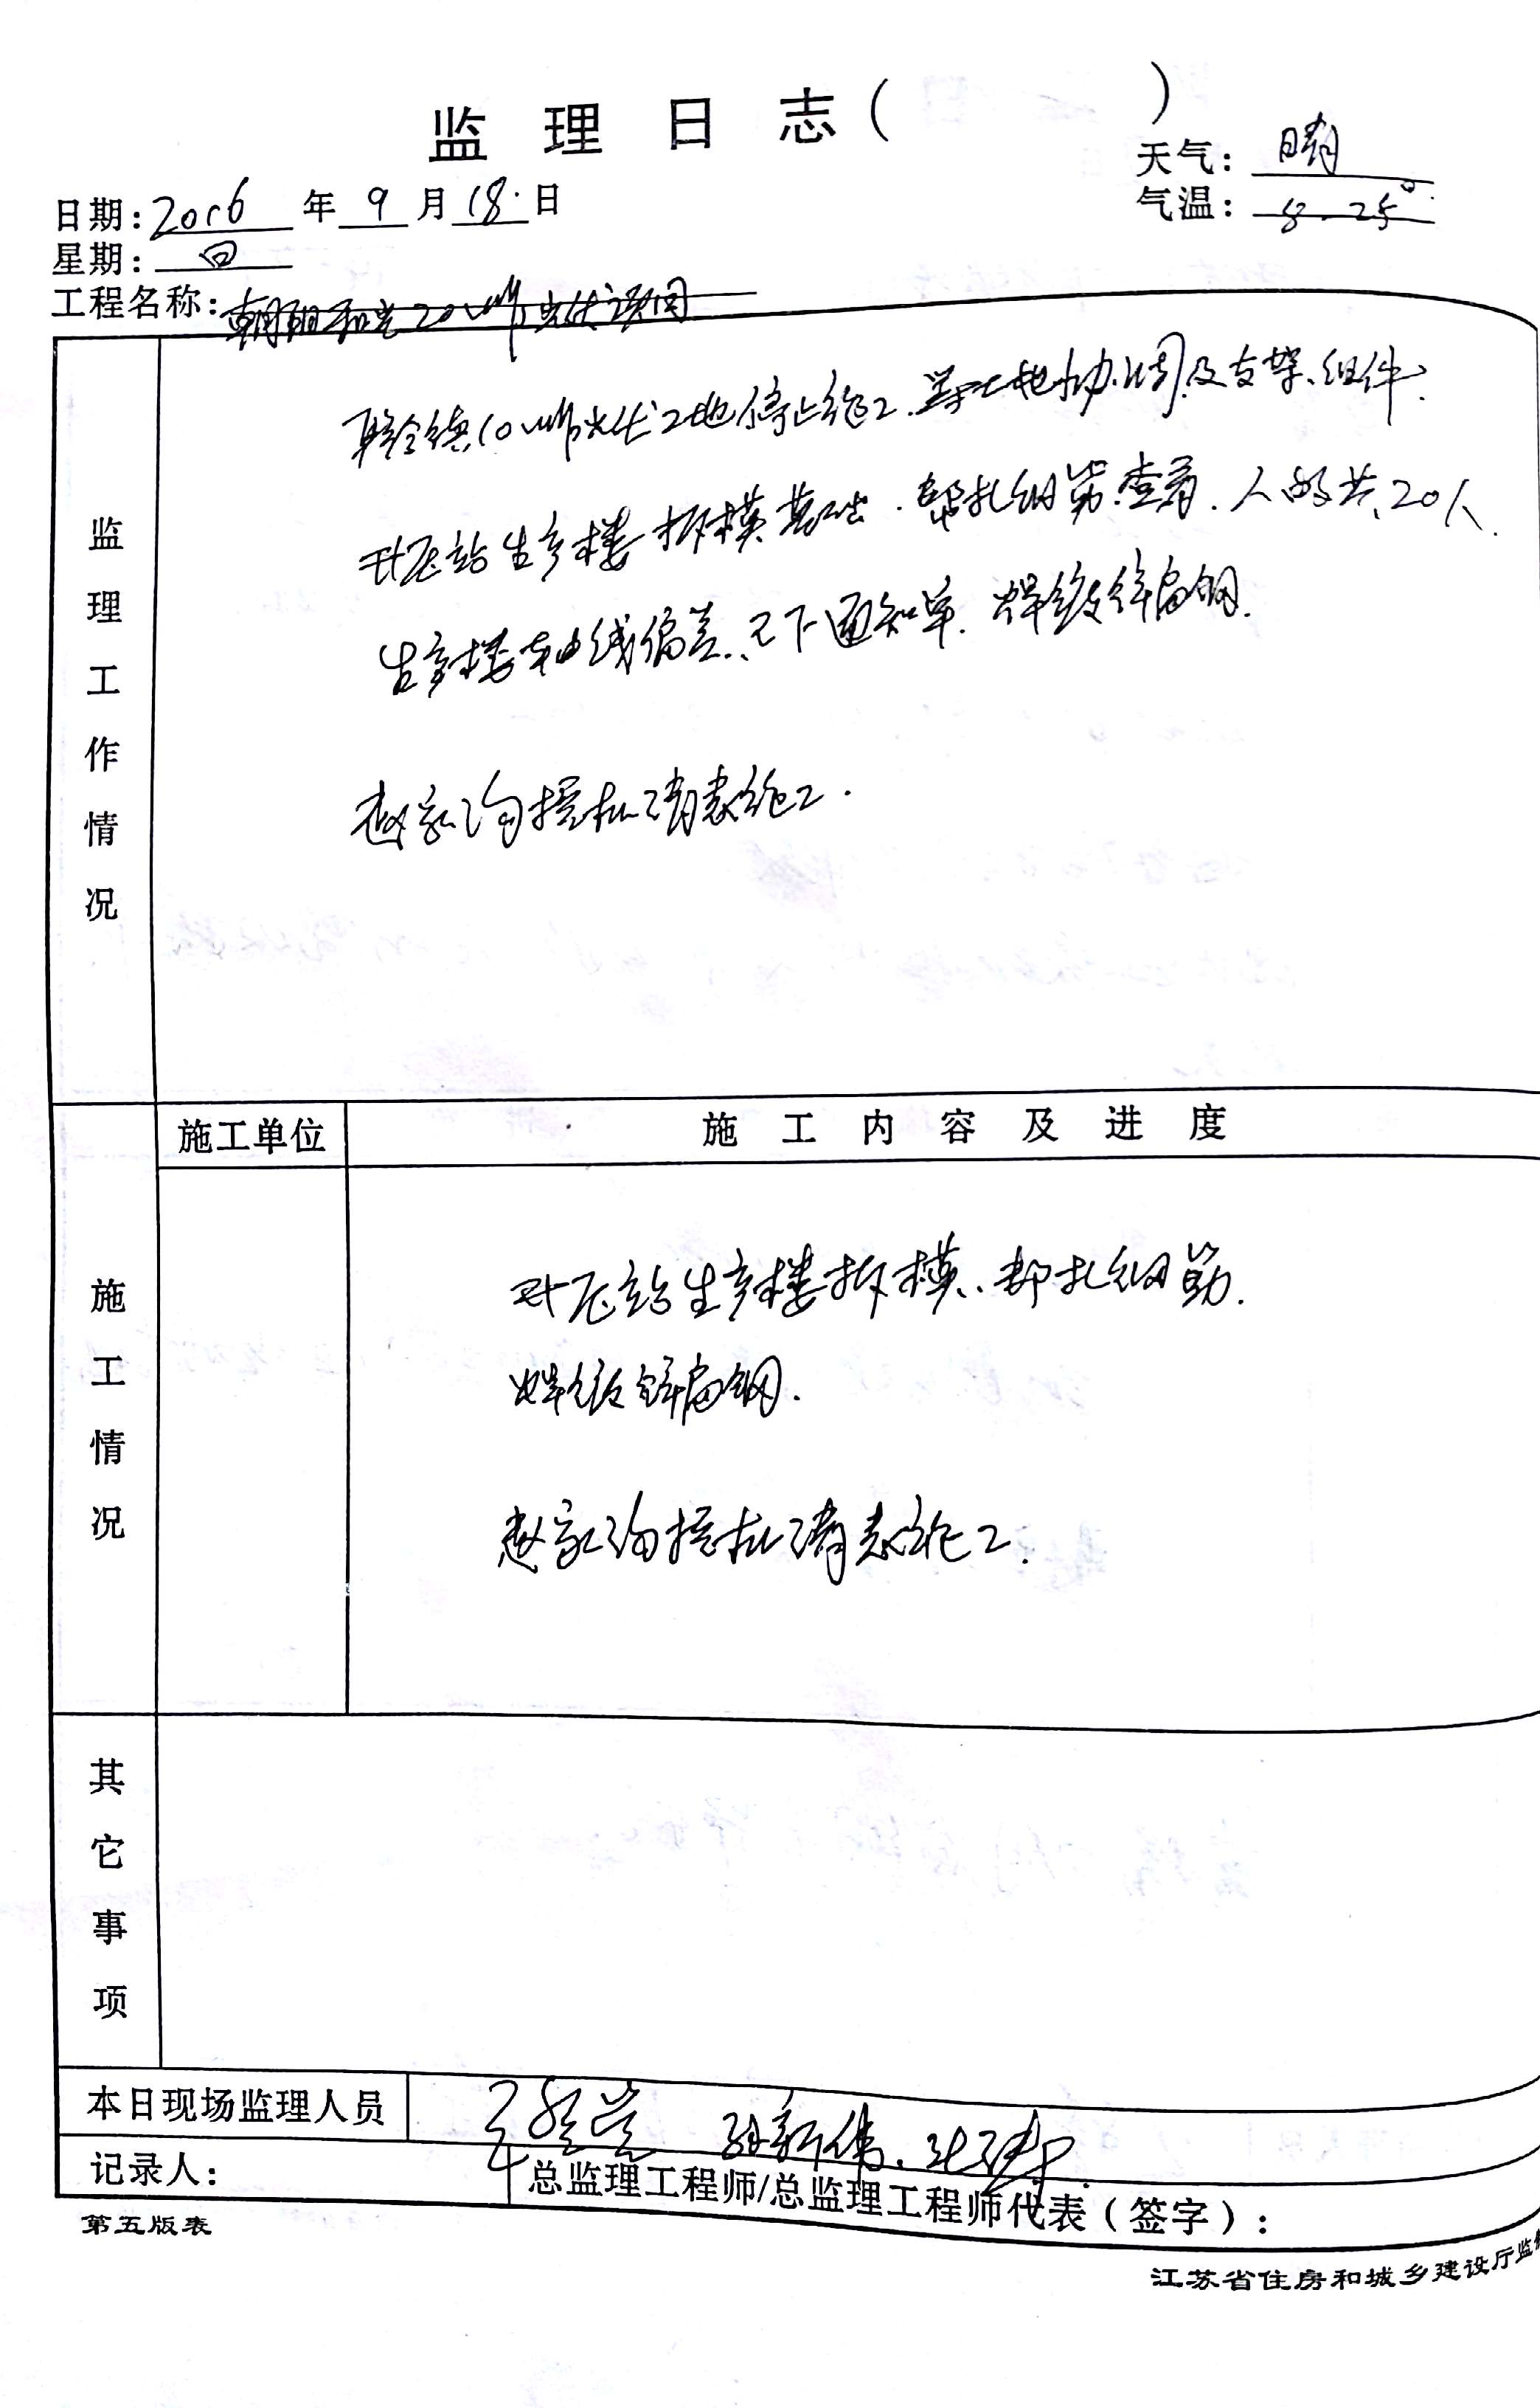 监理日志（ ）
天气：晴
日期：2016年9月18日
气温：8-25°
星期：四
工程名称：朝阳和光20MW光伏项目
监理工作情况
10MW光伏工地停止施工.等土地协调及支架、组件.
升压站生产楼拆模基础.帮扎钢筋.查看.人的共20人.
生产楼轴线偏差、已下通知单.焊镀锌扁钢.
赵家沟挖机清表施工.
施工单位
施工内容及进度
施工情况
升压站生产楼拆模、帮扎钢筋.
焊镀锌扁钢.
赵家沟挖机清表施工.
其它事项
本日现场监理人员
记录人：
总监理工程师/总监理工程师代表（签字）：
第五版表
江苏省住房和城乡建设厅监